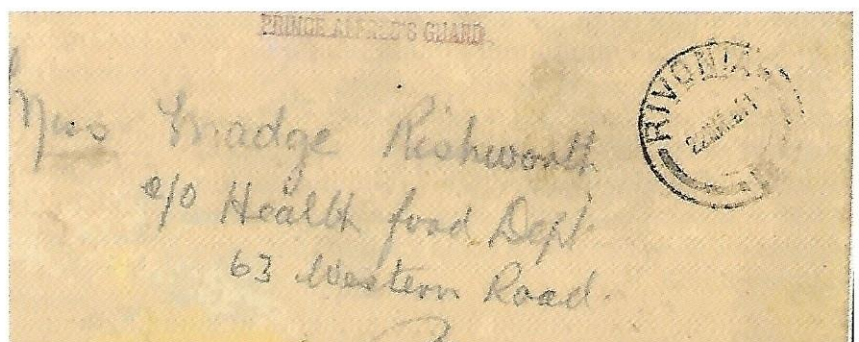 PRINCE ALFRED'S GUARD.
RIVONIA
Miss Madge Rishworth
c/o Health food Dept
63 Western Road.